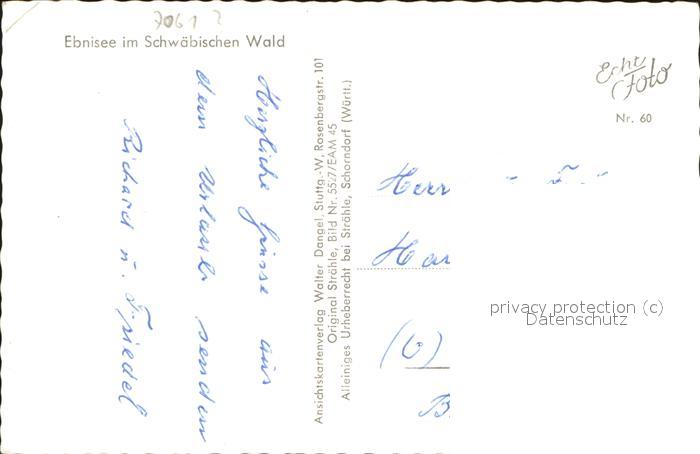 7061 ?
Ebnisee im Schwäbischen Wald
Herzliche Grüsse aus
dem Urlaub senden
Richard u. Friedel
Ansichtskartenverlag Walter Dangel, Stuttg.-W, Rosenbergstr. 101
Original Strähle, Bild Nr. 5527/EAM 45
Alleiniges Urheberrecht bei Strähle, Schorndorf (Württ.)
Echt
Foto
Nr. 60
Herr
(6)
B
privacy protection (c)
Datenschutz